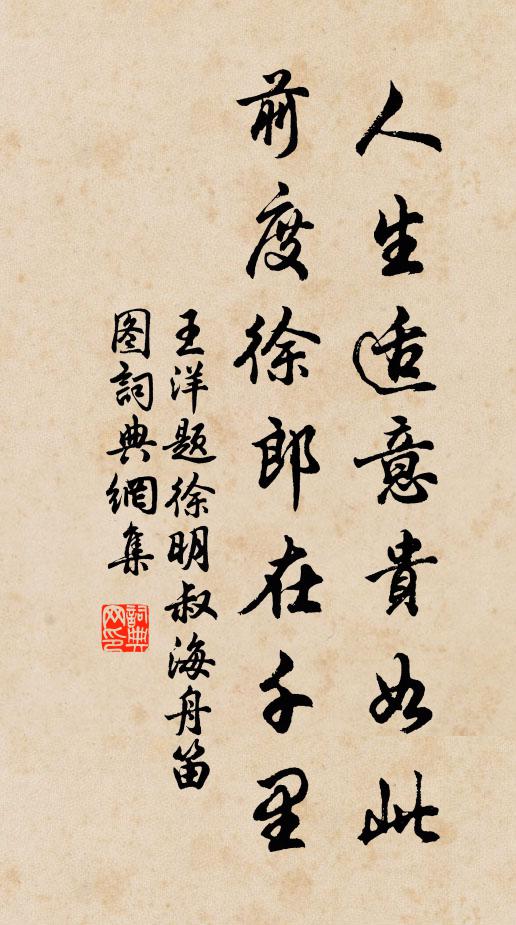 人生适意貴如此
前度徐郎在千里
王洋题徐明叔海舟笛
图詞典網集
詞典
网印